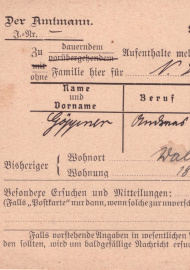 Der Amtmann.
J.-Nr.
Zu dauerndem
vorübergehendem
Aufenthalte mel
mit
ohne
Familie hier für N.
Name
und
Vorname
Beruf
Göppener
Andreas
Bisheriger
Wohnort
Wohnung
Wal
18
Besondere Ersuchen und Mitteilungen:
(Falls „Postkarte" nur dann, wenn solche zur unversch
Falls vorstehende Angaben in wesentlichen
den sollten, wird um baldgefällige Nachricht ersuc